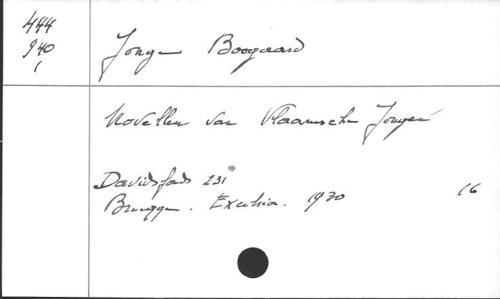 444
940
1
Jonge Boogaard
Novellen van Vlaamsche Jongen
Davidsfonds 231
Brugge. Excelsior. 1930
16